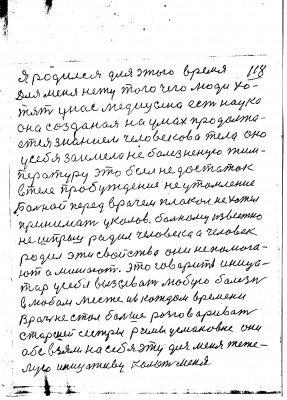 118
Я родился для этого время
Для меня нету того чего люди хо-
тят у нас медицина есть наука
она созданая на умах продолжа-
ется знанием человекова тела оно
у себя заимело не болезненую тим-
пературу это был не достаток
в теле пробуждение не утомление
Больной перед врачем плакол не хотел
принимат уколов. больному известно
не шприц радил человека а человек
родил эти свойства они не помога-
ют а мишают. это говарить иници-
тар у себя вызыват любую болезн
в любом месте и в каждом времени
Врач не стол больше розговариват
старшей сестры
они
абе взяли на себя эту для меня теже-
лую инициативу колот меня